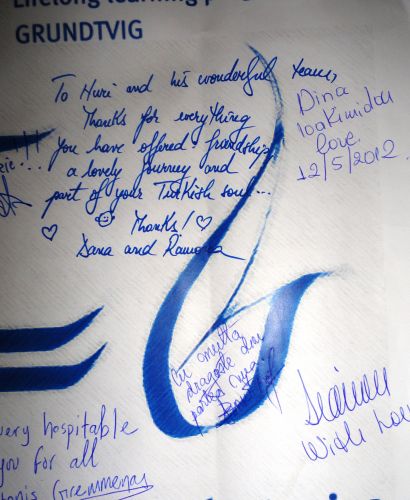 Lifelong learning p
GRUNDTVIG
To Nuri and his wonderful team,
Thanks for everything
you have offered: friendship,
a lovely journey and
part of your Turkish soul...
Thanks!
Dana and Ramona
Dina
Ioakimidou
Love
12/5/2012
Cu multă
dragoste din
partea mea
With Lov
very hospitable
you for all
Gremmenas